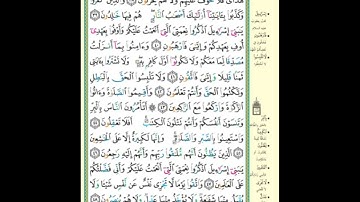 هُدَايَ فَلَا خَوْفٌ عَلَيْهِمْ وَلَا هُمْ يَحْزَنُونَ ٣٨ وَالَّذِينَ كَفَرُوا
وَكَذَّبُوا بِـَٔايَٰتِنَآ أُولَٰٓئِكَ أَصْحَٰبُ النَّارِ هُمْ فِيهَا خَٰلِدُونَ ٣٩
يَٰبَنِىٓ إِسْرَٰٓءِيلَ اذْكُرُوا نِعْمَتِىَ الَّتِىٓ أَنْعَمْتُ عَلَيْكُمْ وَأَوْفُوا بِعَهْدِىٓ
أُوفِ بِعَهْدِكُمْ وَإِيَّٰىَ فَارْهَبُونِ ٤٠ وَءَامِنُوا بِمَآ أَنزَلْتُ
مُصَدِّقًا لِّمَا مَعَكُمْ وَلَا تَكُونُوٓا أَوَّلَ كَافِرٍۭ بِهِۦ وَلَا تَشْتَرُوا بِـَٔايَٰتِى
ثَمَنًا قَلِيلًا وَإِيَّٰىَ فَاتَّقُونِ ٤١ وَلَا تَلْبِسُوا الْحَقَّ بِالْبَٰطِلِ
وَتَكْتُمُوا الْحَقَّ وَأَنتُمْ تَعْلَمُونَ ٤٢ وَأَقِيمُوا الصَّلَوٰةَ وَءَاتُوا
الزَّكَوٰةَ وَارْكَعُوا مَعَ الرَّٰكِعِينَ ٤٣ أَتَأْمُرُونَ النَّاسَ بِالْبِرِّ
وَتَنسَوْنَ أَنفُسَكُمْ وَأَنتُمْ تَتْلُونَ الْكِتَٰبَ أَفَلَا تَعْقِلُونَ ٤٤
وَاسْتَعِينُوا بِالصَّبْرِ وَالصَّلَوٰةِ وَإِنَّهَا لَكَبِيرَةٌ إِلَّا عَلَى الْخَٰشِعِينَ ٤٥
الَّذِينَ يَظُنُّونَ أَنَّهُم مُّلَٰقُوا رَبِّهِمْ وَأَنَّهُمْ إِلَيْهِ رَٰجِعُونَ ٤٦
يَٰبَنِىٓ إِسْرَٰٓءِيلَ اذْكُرُوا نِعْمَتِىَ الَّتِىٓ أَنْعَمْتُ عَلَيْكُمْ وَأَنِّى فَضَّلْتُكُمْ
عَلَى الْعَٰلَمِينَ ٤٧ وَاتَّقُوا يَوْمًا لَّا تَجْزِى نَفْسٌ عَن نَّفْسٍ شَيْـًٔا وَلَا
يُقْبَلُ مِنْهَا شَفَٰعَةٌ وَلَا يُؤْخَذُ مِنْهَا عَدْلٌ وَلَا هُمْ يُنصَرُونَ ٤٨